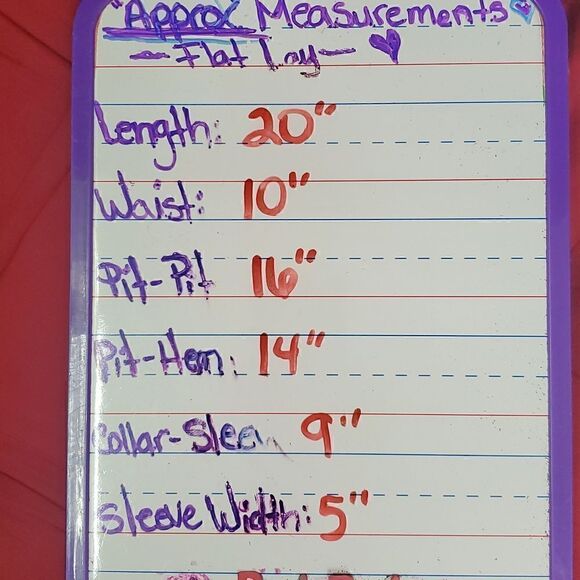 "Approx Measurements
~ Flat Lay ~
Length: 20"
Waist: 10"
Pit-Pit 16"
Pit-Hem: 14"
Collar-Slee 9"
Sleeve Width: 5"